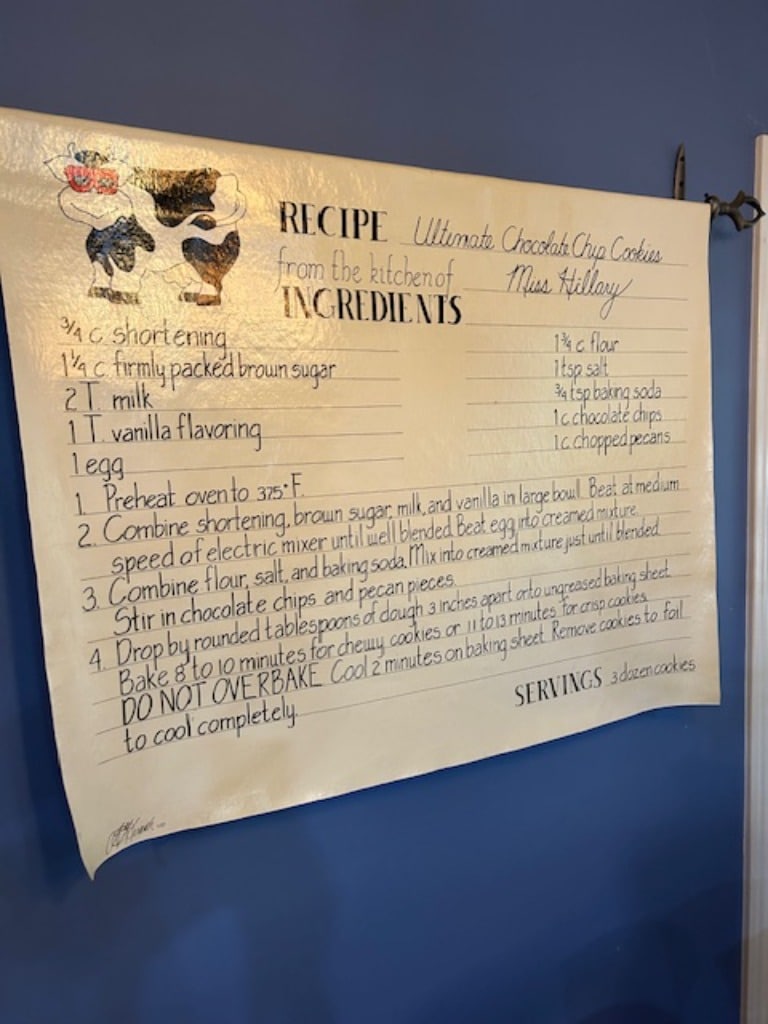 RECIPE Ultimate Chocolate Chip Cookies
from the kitchen of Miss Hillary
INGREDIENTS
3/4 c. shortening
1 1/4 c. firmly packed brown sugar
2 T. milk
1 T. vanilla flavoring
1 egg
1 3/4 c. flour
1 tsp salt
3/4 tsp baking soda
1 c. chocolate chips
1 c. chopped pecans
1. Preheat oven to 375°F.
2. Combine shortening, brown sugar, milk, and vanilla in large bowl. Beat at medium
speed of electric mixer until well blended. Beat egg into creamed mixture.
3. Combine flour, salt, and baking soda. Mix into creamed mixture just until blended.
Stir in chocolate chips and pecan pieces.
4. Drop by rounded tablespoons of dough 3 inches apart onto ungreased baking sheet.
Bake 8 to 10 minutes for chewy cookies or 11 to 13 minutes for crisp cookies.
DO NOT OVERBAKE. Cool 2 minutes on baking sheet. Remove cookies to foil
to cool completely.
SERVINGS 3 dozen cookies